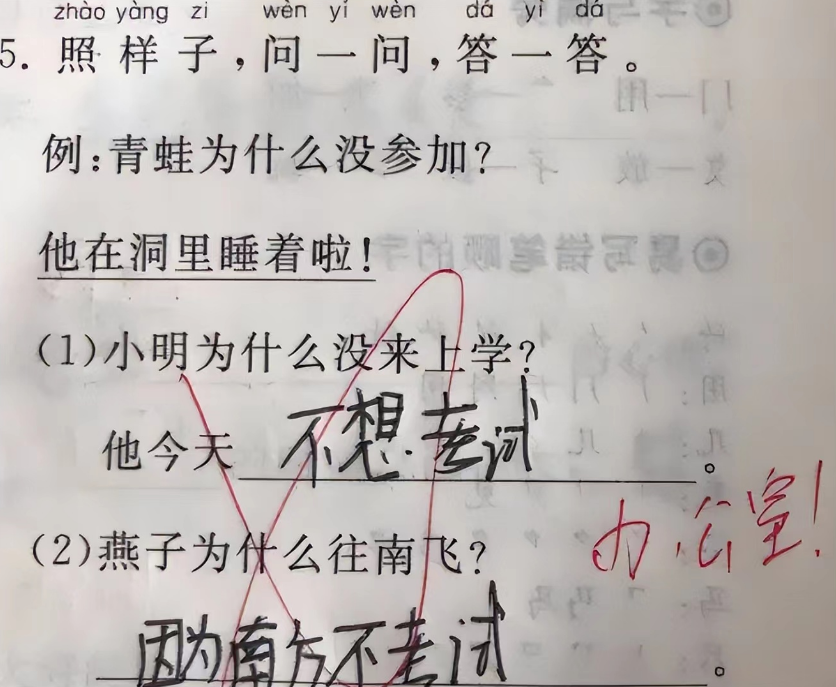 zhào yàng zi wèn yí wèn dá yì dá
5. 照样子，问一问，答一答。
例：青蛙为什么没参加？
他在洞里睡着啦！
(1)小明为什么没来上学？
他今天不想考试。
办公室！
(2)燕子为什么往南飞？
因为南方不考试。